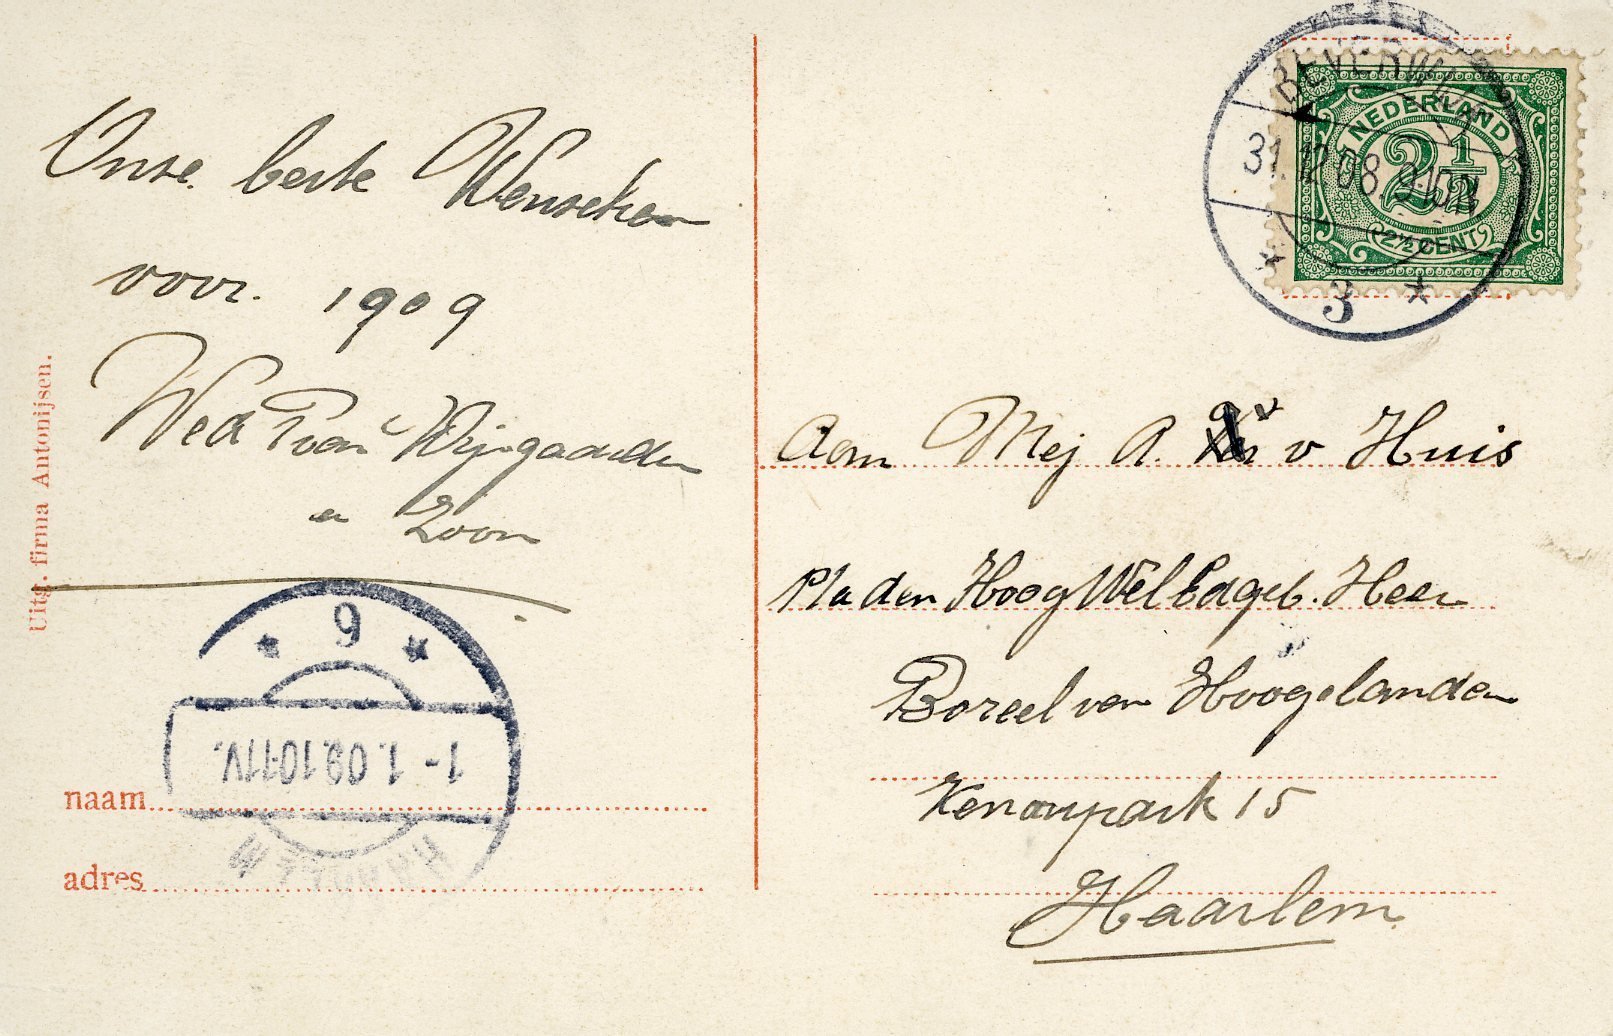 Onze beste Wenschen
voor. 1909
Wed P van Wijngaarden
en Zoon
Uitg. firma Antonijsen.
9
1-1.09.10-11V.
HAARLEM
naam
adres
BEVERWIJK
31.12.08.9-10N
3
NEDERLAND
2½
2½ CENT
Aan Mej A. v Huis
p/a den HoogWelEdgeb. Heer
Boreel van Hoogelanden
Kenaupark 15
Haarlem